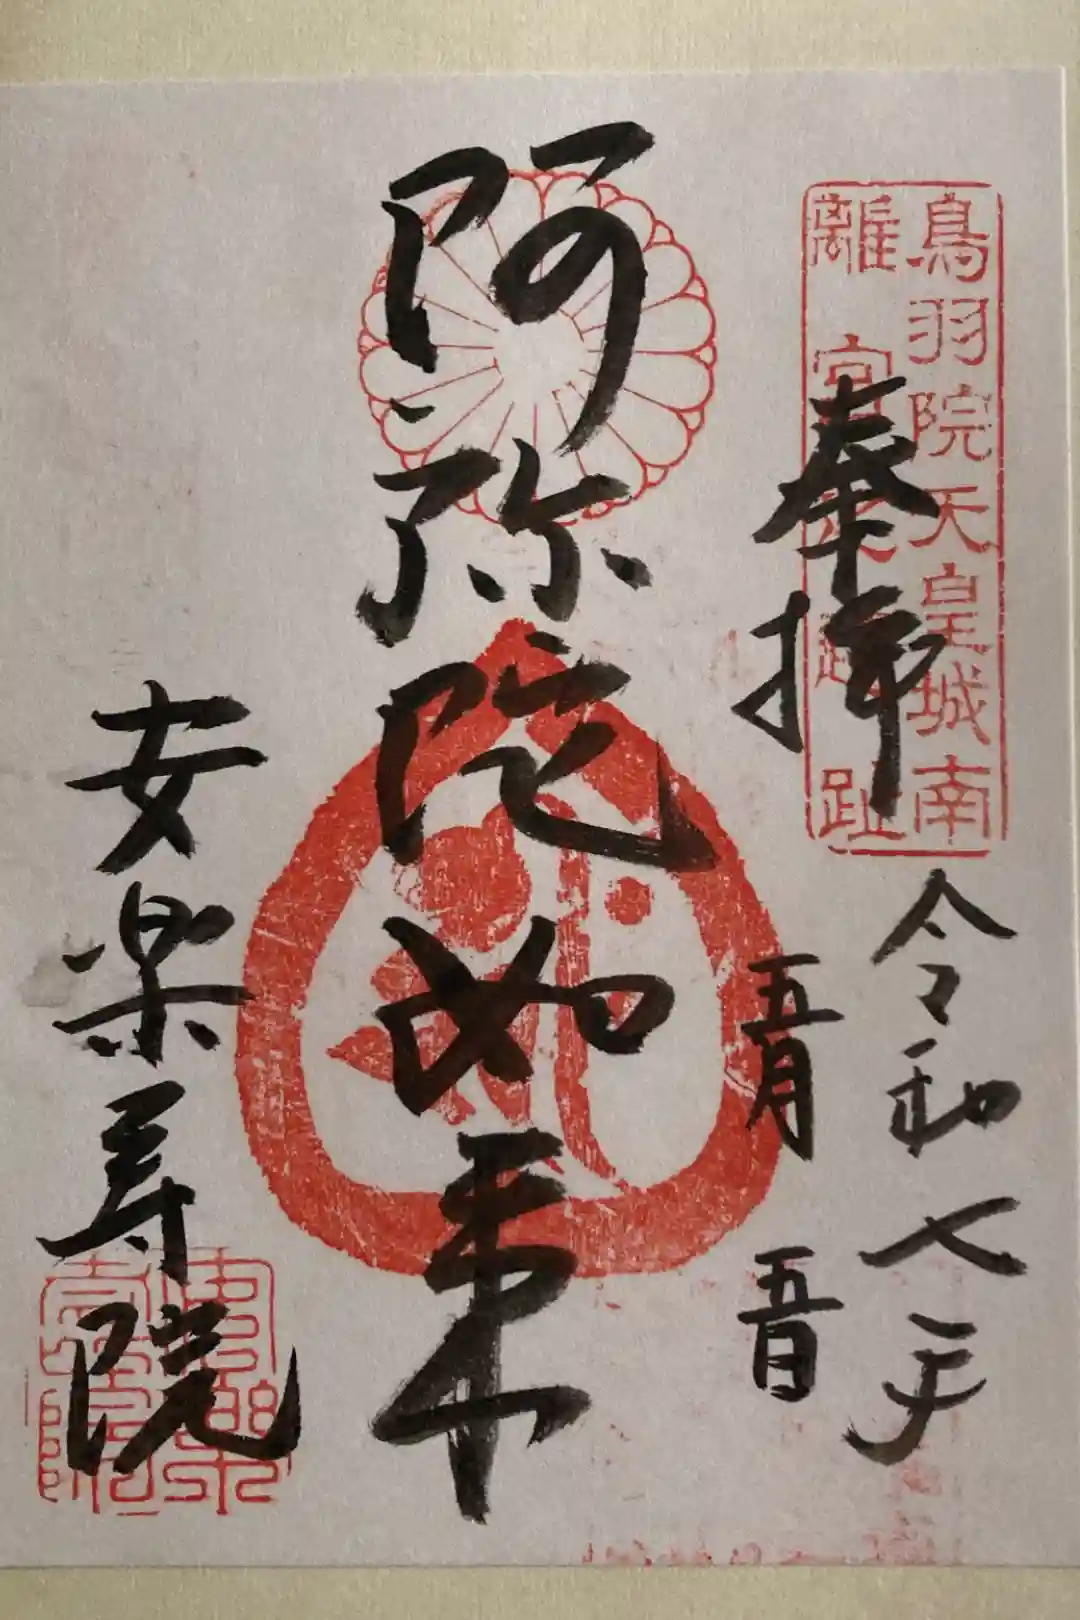 鳥羽院天皇城南
離宮
趾
奉拝
令和七年
五月
五日
阿弥陀如来
安楽寿院
安楽
寿院